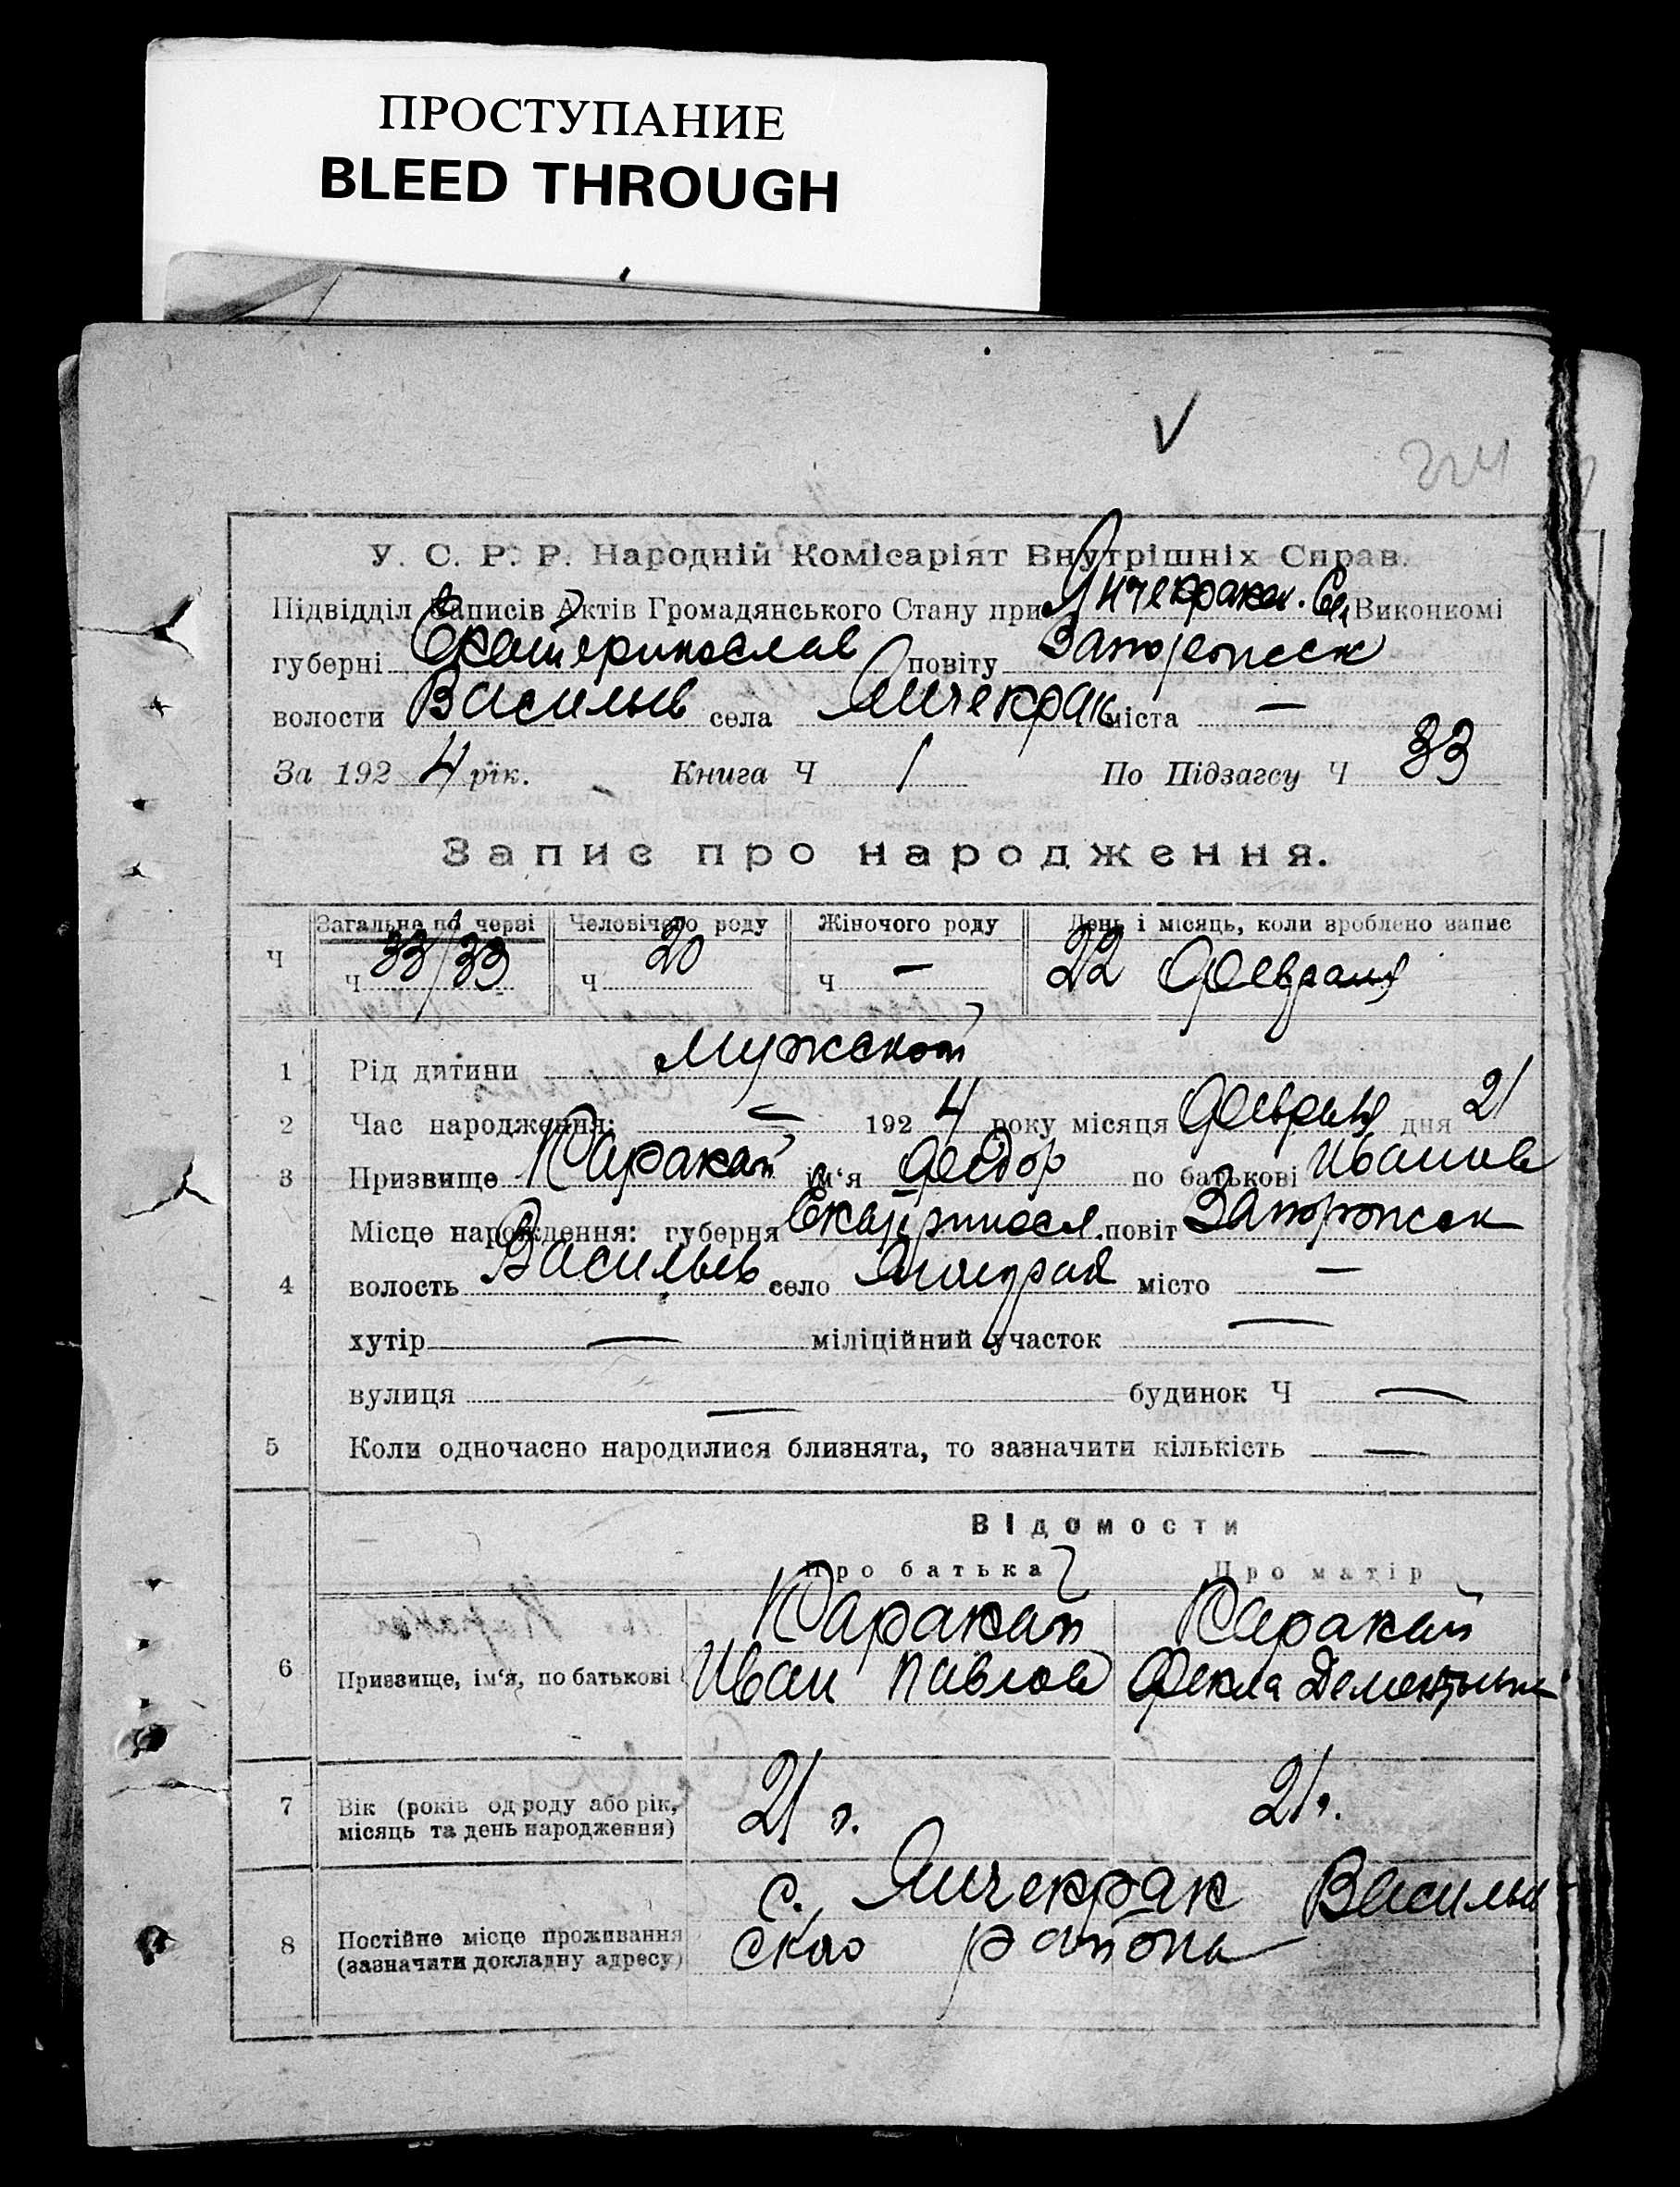 ПРОСТУПАНИЕ
BLEED THROUGH
224
У. С. Р. Р. Народній Комісаріят Внутрішніх Справ.
Підвідділ Записів Актів Громадянського Стану при Янчекракск. Сел Виконкомі
губерні Екатеринослав повіту Запорожск
волости Васильев села Янчекрак міста —
За 1924 рік. Книга Ч 1 По Підзагсу Ч 33
Запис про народження.
Загальне по черві Человічого роду Жіночого роду День і місяць, коли зроблено запис
Ч Ч 33/33 Ч 20 Ч — 22 Февраля
1 Рід дитини Мужской
2 Час народження: — 1924 року місяця Февраля дня 21
3 Призвище Каракай ім'я Феодор по батькові Иванов
Місце народження: губерня Екатериносл. повіт Запорожск
4 волость Васильев село місто —
хутір — міліційний участок —
вулиця — будинок Ч —
5 Коли одночасно народилися близнята, то зазначити кількість —
Відомости
Про батька Про матір
Каракай Каракай
6 Призвище, ім'я, по батькові Иван Павлов Фекла Дементьевн
7 Вік (років од роду або рік, місяць та день народження) 21 г. 21 г.
с. Янчекрак Василье
8 Постійне місце проживання ского района
(зазначити докладну адресу)